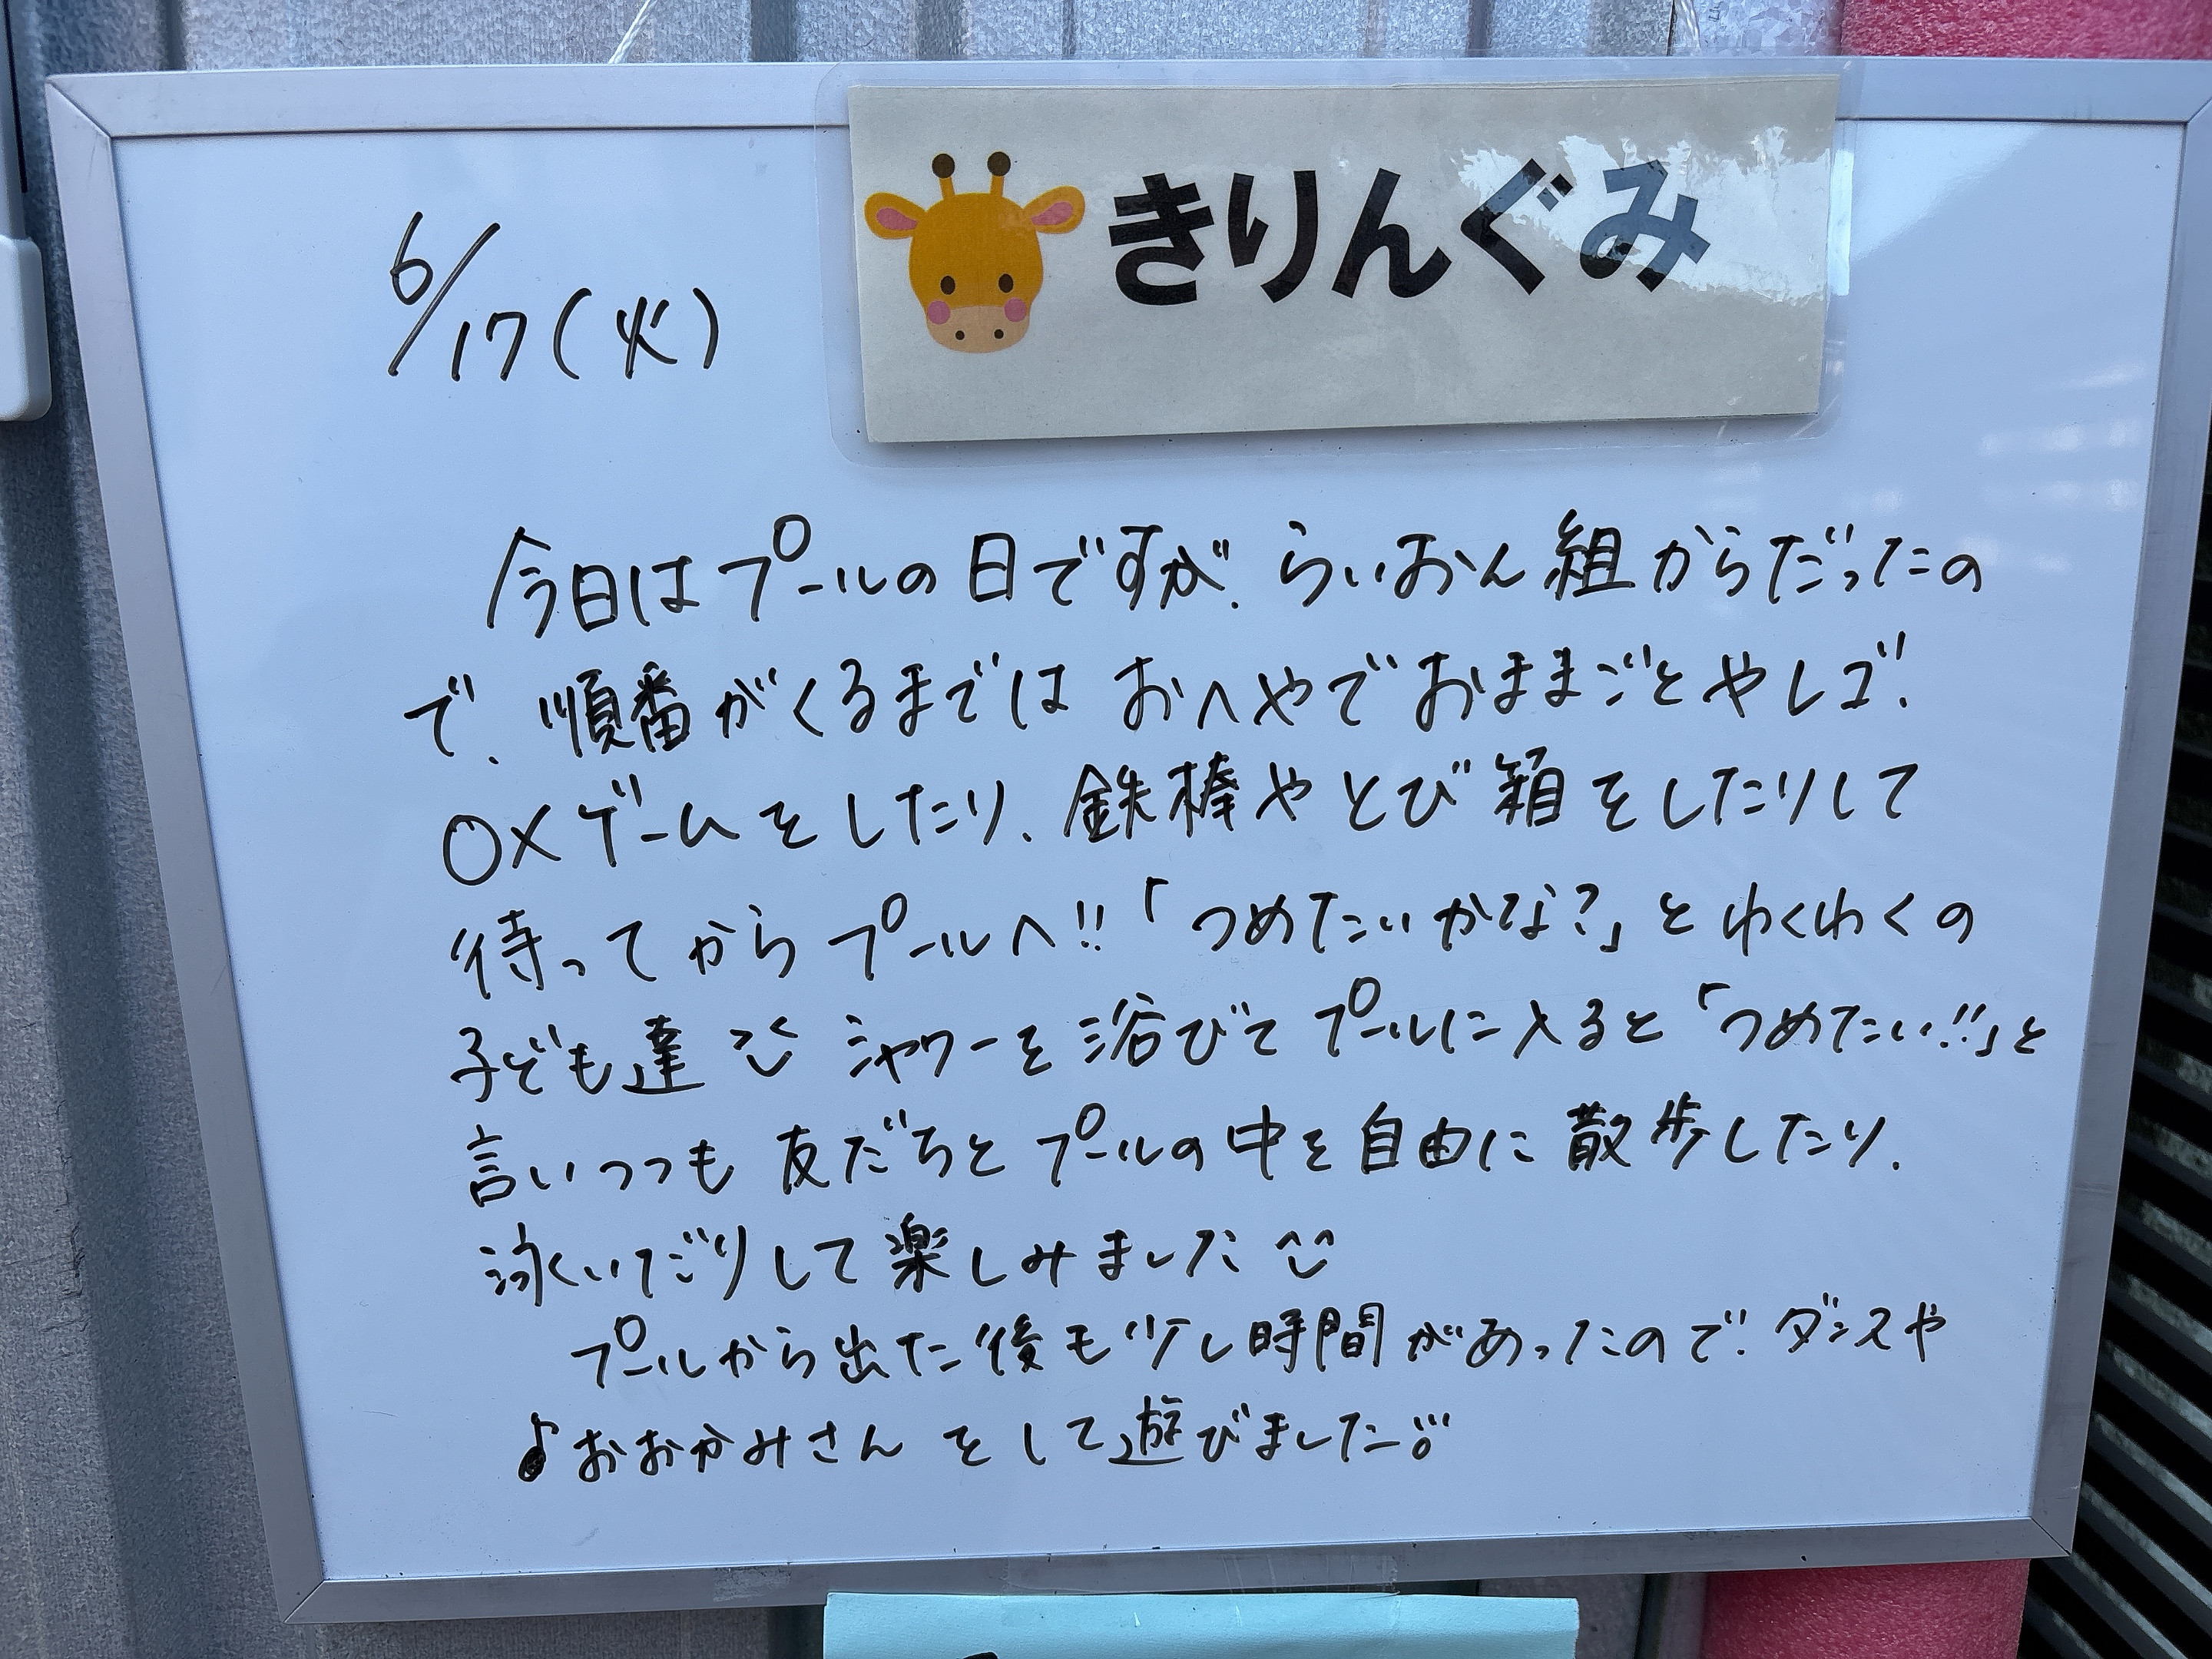 きりんぐみ
6/17(火)
今日はプールの日ですが、らいおん組からだったの
で、順番がくるまでは おへやでおままごとやレゴ、
○×ゲームをしたり、鉄棒やとび箱をしたりして
待ってからプールへ!!「つめたいかな?」とわくわくの
子ども達 シャワーを浴びてプールに入ると「つめたい!!」と
言いつつも 友だちとプールの中を自由に散歩したり、
泳くいだりして楽しみました
プールから出た後も少し時間があったので、ダンスや
♪おおかみさん をして遊びました